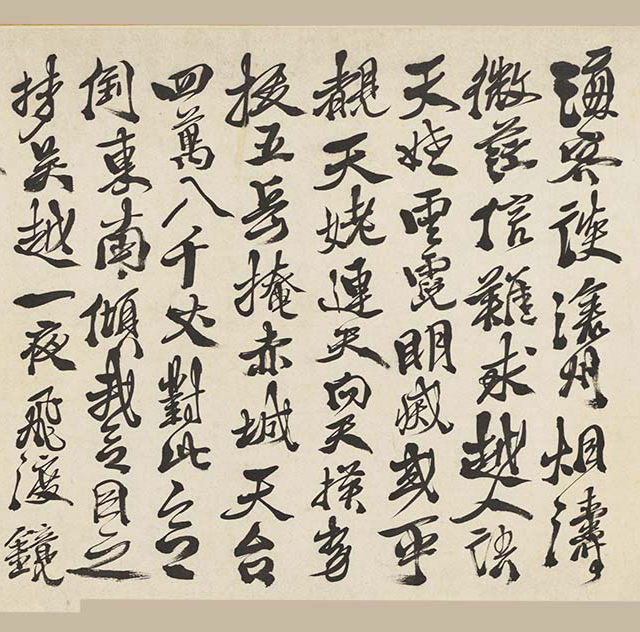 海客談瀛州烟濤
微茫信難求越人語
天姥雲霓明滅或可
覩天姥連天向天橫勢
拔五岳掩赤城天台
四萬八千丈對此欲
倒東南傾我欲因之
夢吴越一夜飛渡鏡